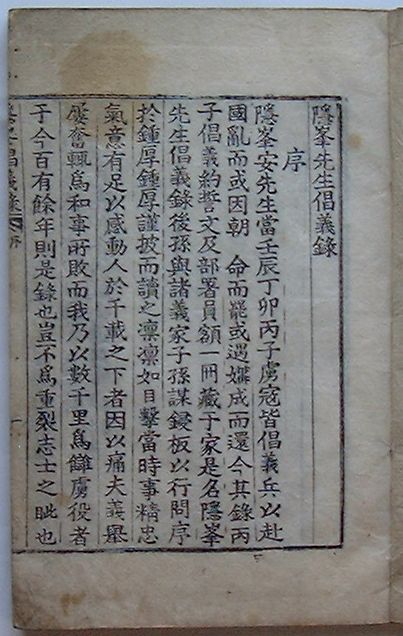 隱峯先生倡義錄
序
隱峯安先生當壬辰丁卯丙子虜寇皆倡義兵以赴
國亂而或因朝 命而罷或遇媾成而還今其錄丙
子倡義約誓文及部署員額一冊藏于家是名隱峯
先生倡義錄後孫與諸義家子孫謀鋟板以行問序
於鍾厚鍾厚謹披而讀之凜凜如目擊當時事精忠
氣意有足以感動人於千載之下者因以痛夫義擧
屢奮輒爲和事所敗而我乃以數千里爲讎虜役者
于今百有餘年則是錄也豈不爲重裂志士之眦也
倡義錄 序 一